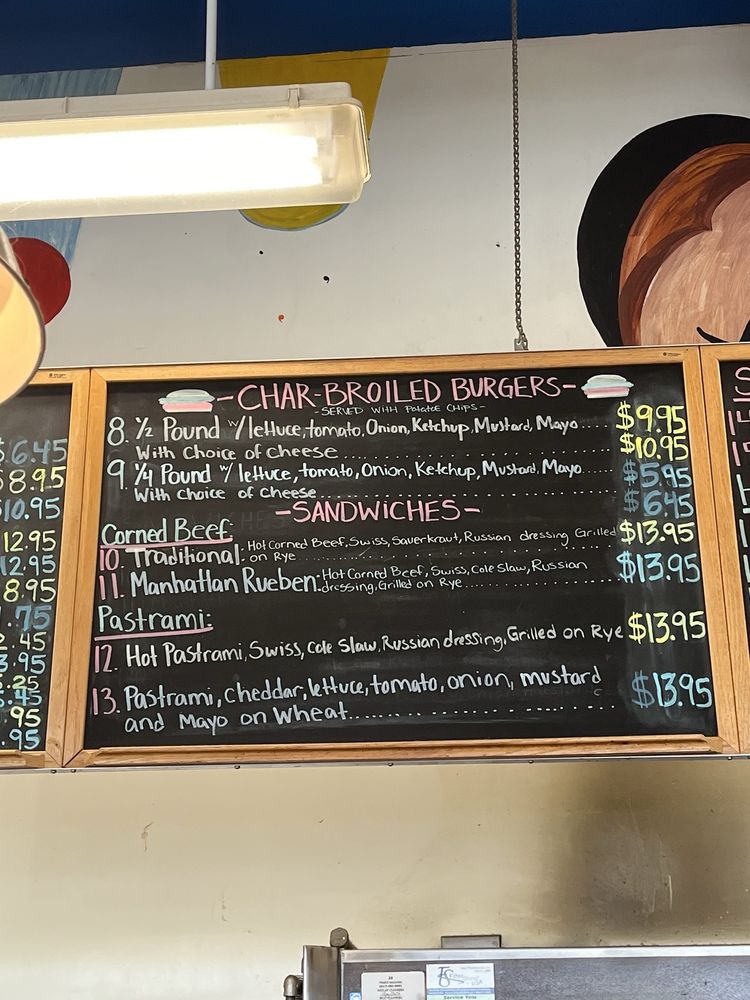 -CHAR-BROILED BURGERS-
-SERVED WITH Potatoe CHIPS-
8. ½ Pound w/ lettuce, tomato, Onion, Ketchup, Mustard, Mayo $9.95
With Choice of Cheese.......... $10.95
9. ¼ Pound w/ lettuce, tomato, Onion, Ketchup, Mustard, Mayo..... $5.95
With Choice of Cheese.......... $6.45
-SANDWICHES-
Corned Beef:
10. Traditional- Hot Corned Beef, Swiss, Sauerkraut, Russian dressing Grilled $13.95
on Rye..........
11. Manhattan Rueben: Hot Corned Beef, Swiss, Cole Slaw, Russian $13.95
dressing, Grilled on Rye..........
Pastrami:
12. Hot Pastrami, Swiss, Cole Slaw, Russian dressing, Grilled on Rye $13.95
13. Pastrami, cheddar, lettuce, tomato, onion, mustard $13.95
and Mayo on Wheat..........
$6.45
8.95
10.95
12.95
12.95
8.95
.75
.45
3.95
.25
.45
.95
.95
14
Service You